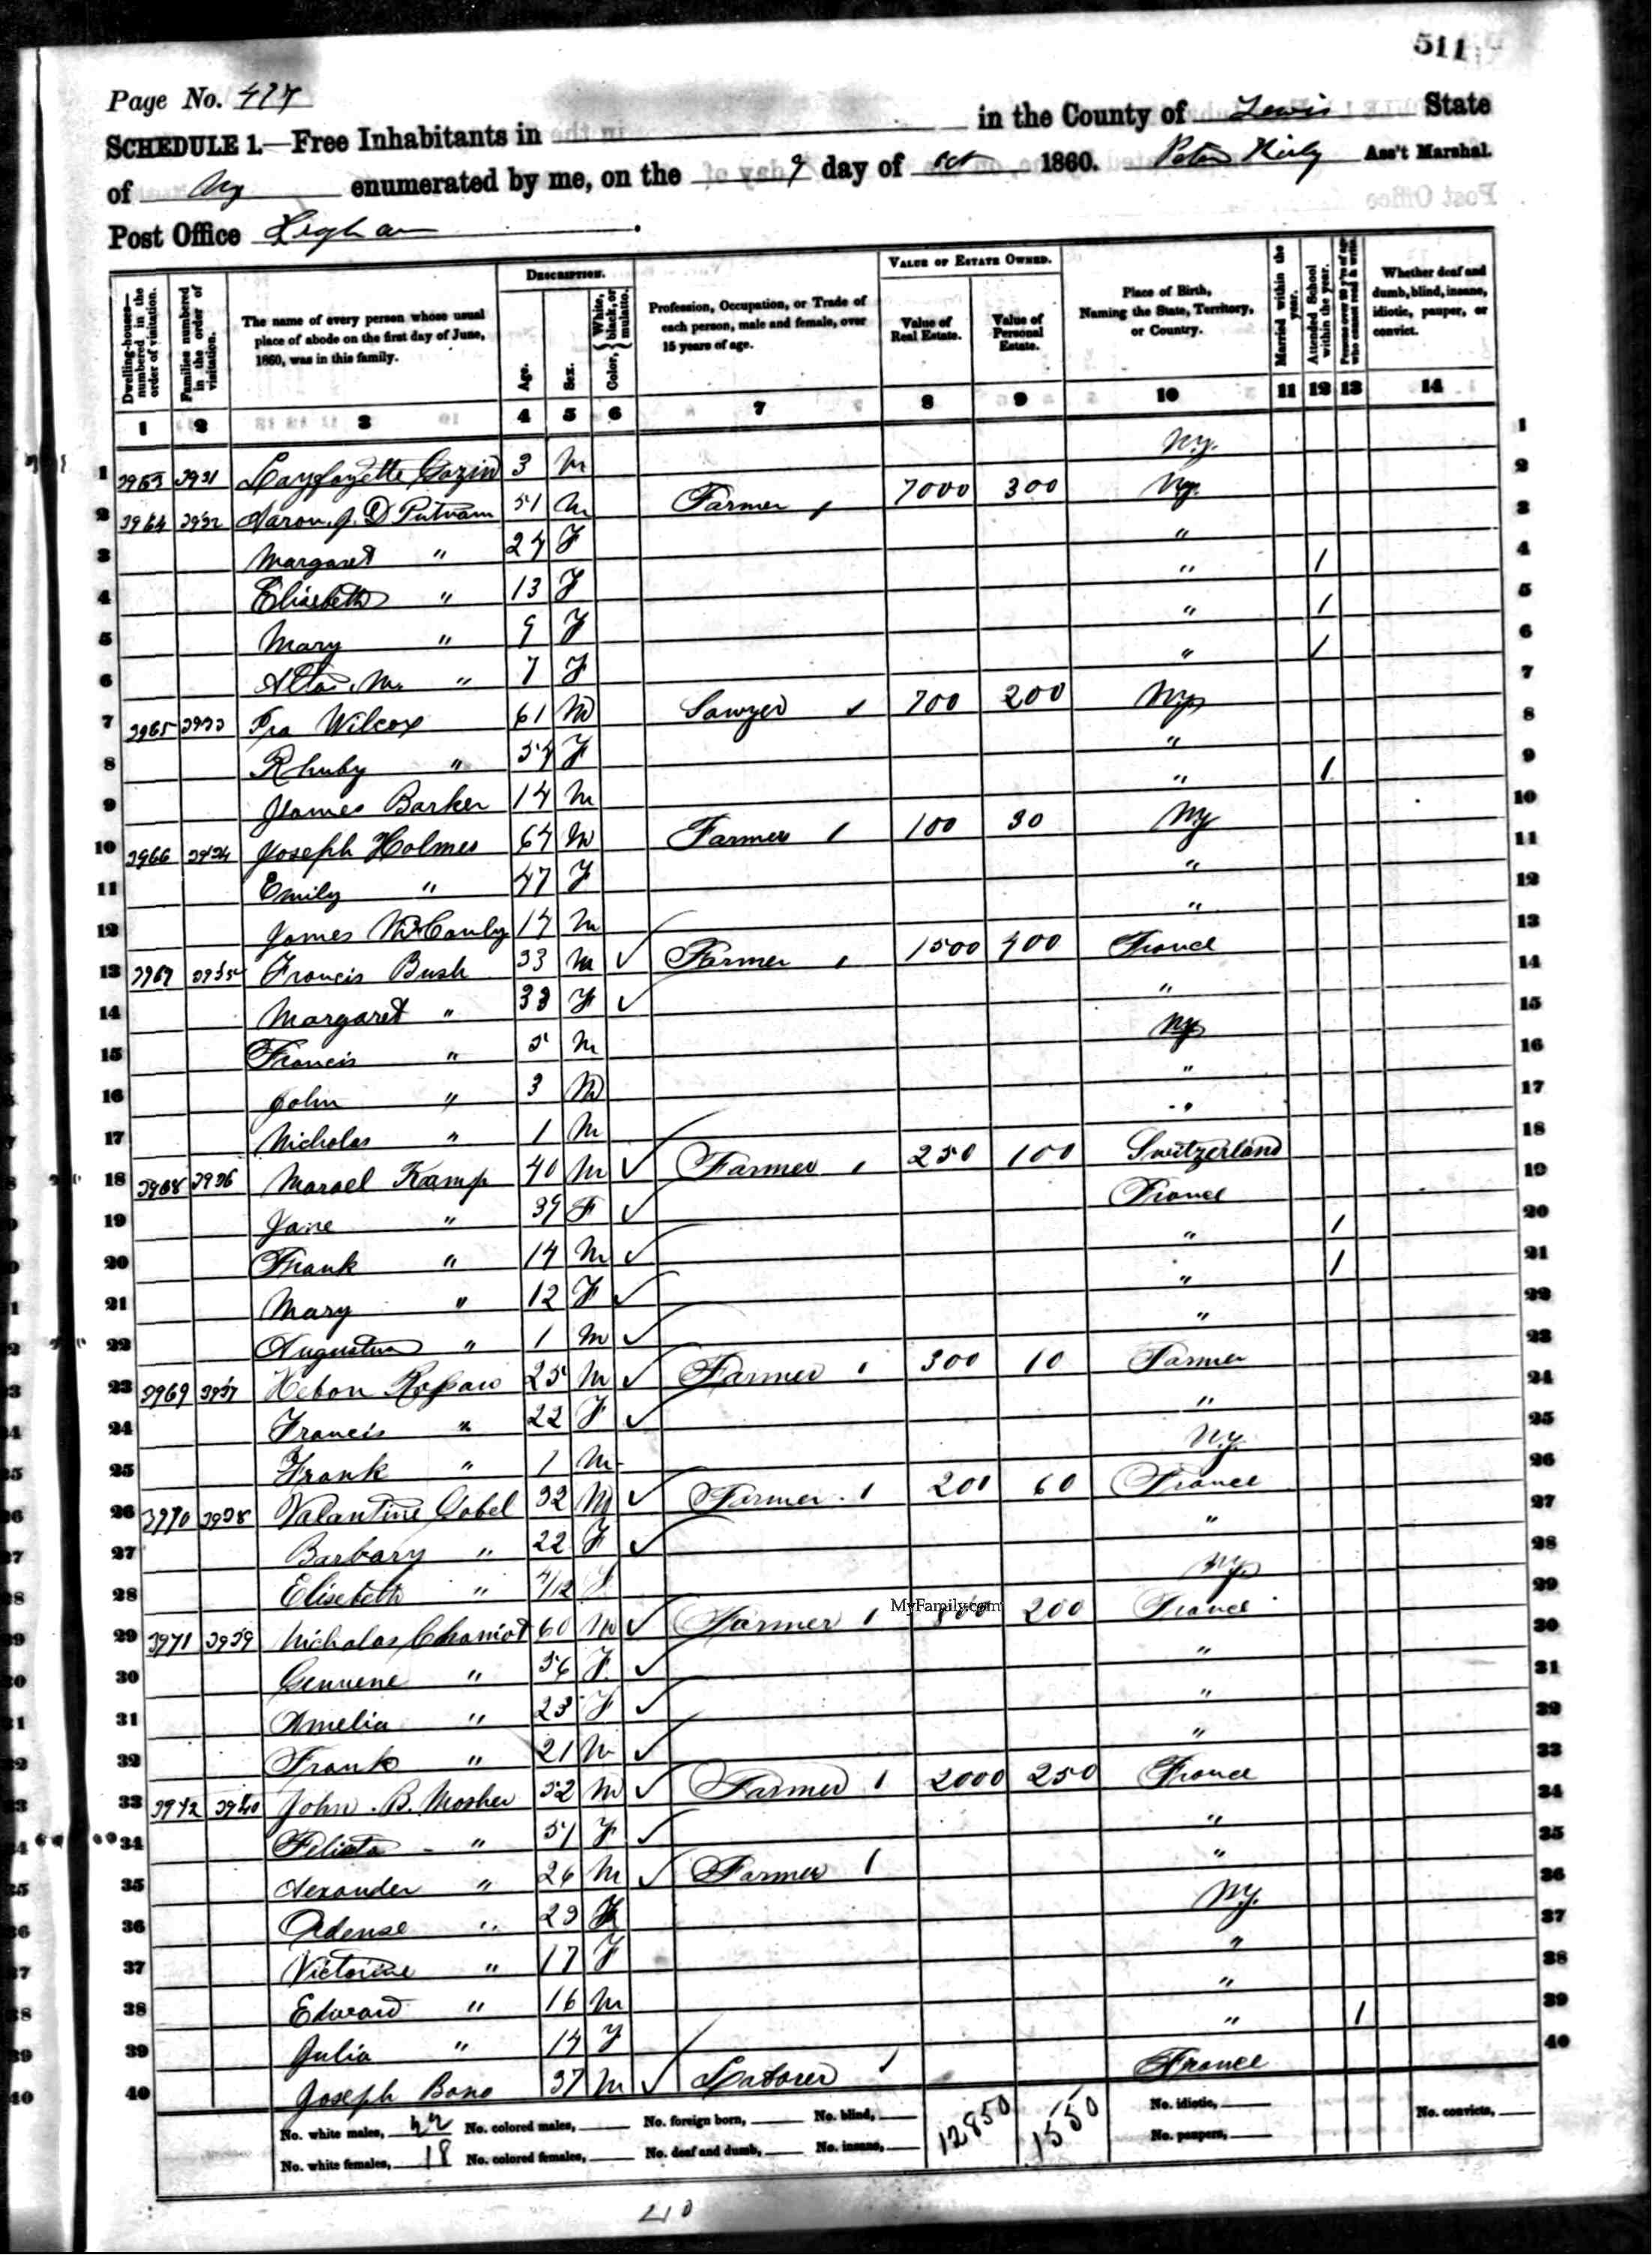 511
Page No.
SCHEDULE 1.—Free Inhabitants in in the County of Lewis State
of Ny enumerated by me, on the 9 day of Oct 1860. Peter Kirly Ass't Marshal.
Post Office
Dwelling-houses—numbered in the order of visitation.
Families numbered in the order of visitation.
The name of every person whose usual place of abode on the first day of June, 1860, was in this family.
DESCRIPTION.
Age.
Sex.
Color, { White, black, or mulatto.
Profession, Occupation, or Trade of each person, male and female, over 15 years of age.
VALUE OF ESTATE OWNED.
Value of Real Estate.
Value of Personal Estate.
Place of Birth, Naming the State, Territory, or Country.
Married within the year.
Attended School within the year.
Persons over 20 y'rs of age who cannot read & write.
Whether deaf and dumb, blind, insane, idiotic, pauper, or convict.
1 2 3 4 5 6 7 8 9 10 11 12 13 14
1 3963 3931 3 M Ny. 1
2 3964 3932 Aaron J. D Putnam 51 M Farmer 7000 300 Ny. 2
3 Margaret " F " 3
4 Elisebeth " 13 F " 1 4
5 Mary " 9 F " 1 5
6 " 7 F " 1 6
7 3965 3933 Ira Wilcox 61 M Sawyer 700 200 Ny 7
8 Rhuby " F " 8
9 James Barker 14 M " 1 9
10 3966 3934 Joseph Holmes 64 M Farmer 100 30 Ny 10
11 Emily " 47 F " 11
12 James 14 M " 12
13 3967 3935 Francis Bush 33 M ✓ Farmer 1500 400 France 13
14 Margaret " 33 F ✓ " 14
15 Francis " 5 M Ny 15
16 John " 3 M " 16
17 Nicholas " 1 M " 17
18 3968 3936 Kamp 40 M ✓ Farmer 250 100 Switzerland 18
19 Jane " 39 F ✓ France 19
20 Frank " 14 M ✓ " 1 20
21 Mary " 12 F ✓ " 1 21
22 Augustus " 1 M ✓ " 22
23 3969 3937 25 M ✓ Farmer 300 10 Farmer 23
24 Francis " 22 F ✓ " 24
25 Frank " 1 M Ny. 25
26 3970 3938 Valantine Gobel 32 M ✓ Farmer 200 60 France 26
27 Barbary " 22 F ✓ " 27
28 Elisebeth " F Ny 28
MyFamily.com
29 3971 3939 Nicholas Chaniot 60 M ✓ Farmer 800 200 France 29
30 " 56 F ✓ " 30
31 Amelia " 23 F ✓ " 31
32 Frank " 21 M ✓ " 32
33 3972 3940 John B. Mosher 52 M ✓ Farmer 2000 250 France 33
34 " 51 F ✓ " 34
35 Alexander " 26 M ✓ Farmer " 35
36 Adense " 23 F Ny. 36
37 Victorine " 17 F " 37
38 Edward " 16 M " 38
39 Julia " 14 F " 1 39
40 Joseph Bono 37 M ✓ Laborer France 40
No. white males, 22 No. colored males, No. foreign born, No. blind, 12850 1550 No. idiotic, No. convicts,
No. white females, 18 No. colored females, No. deaf and dumb, No. insane, No. paupers,
210